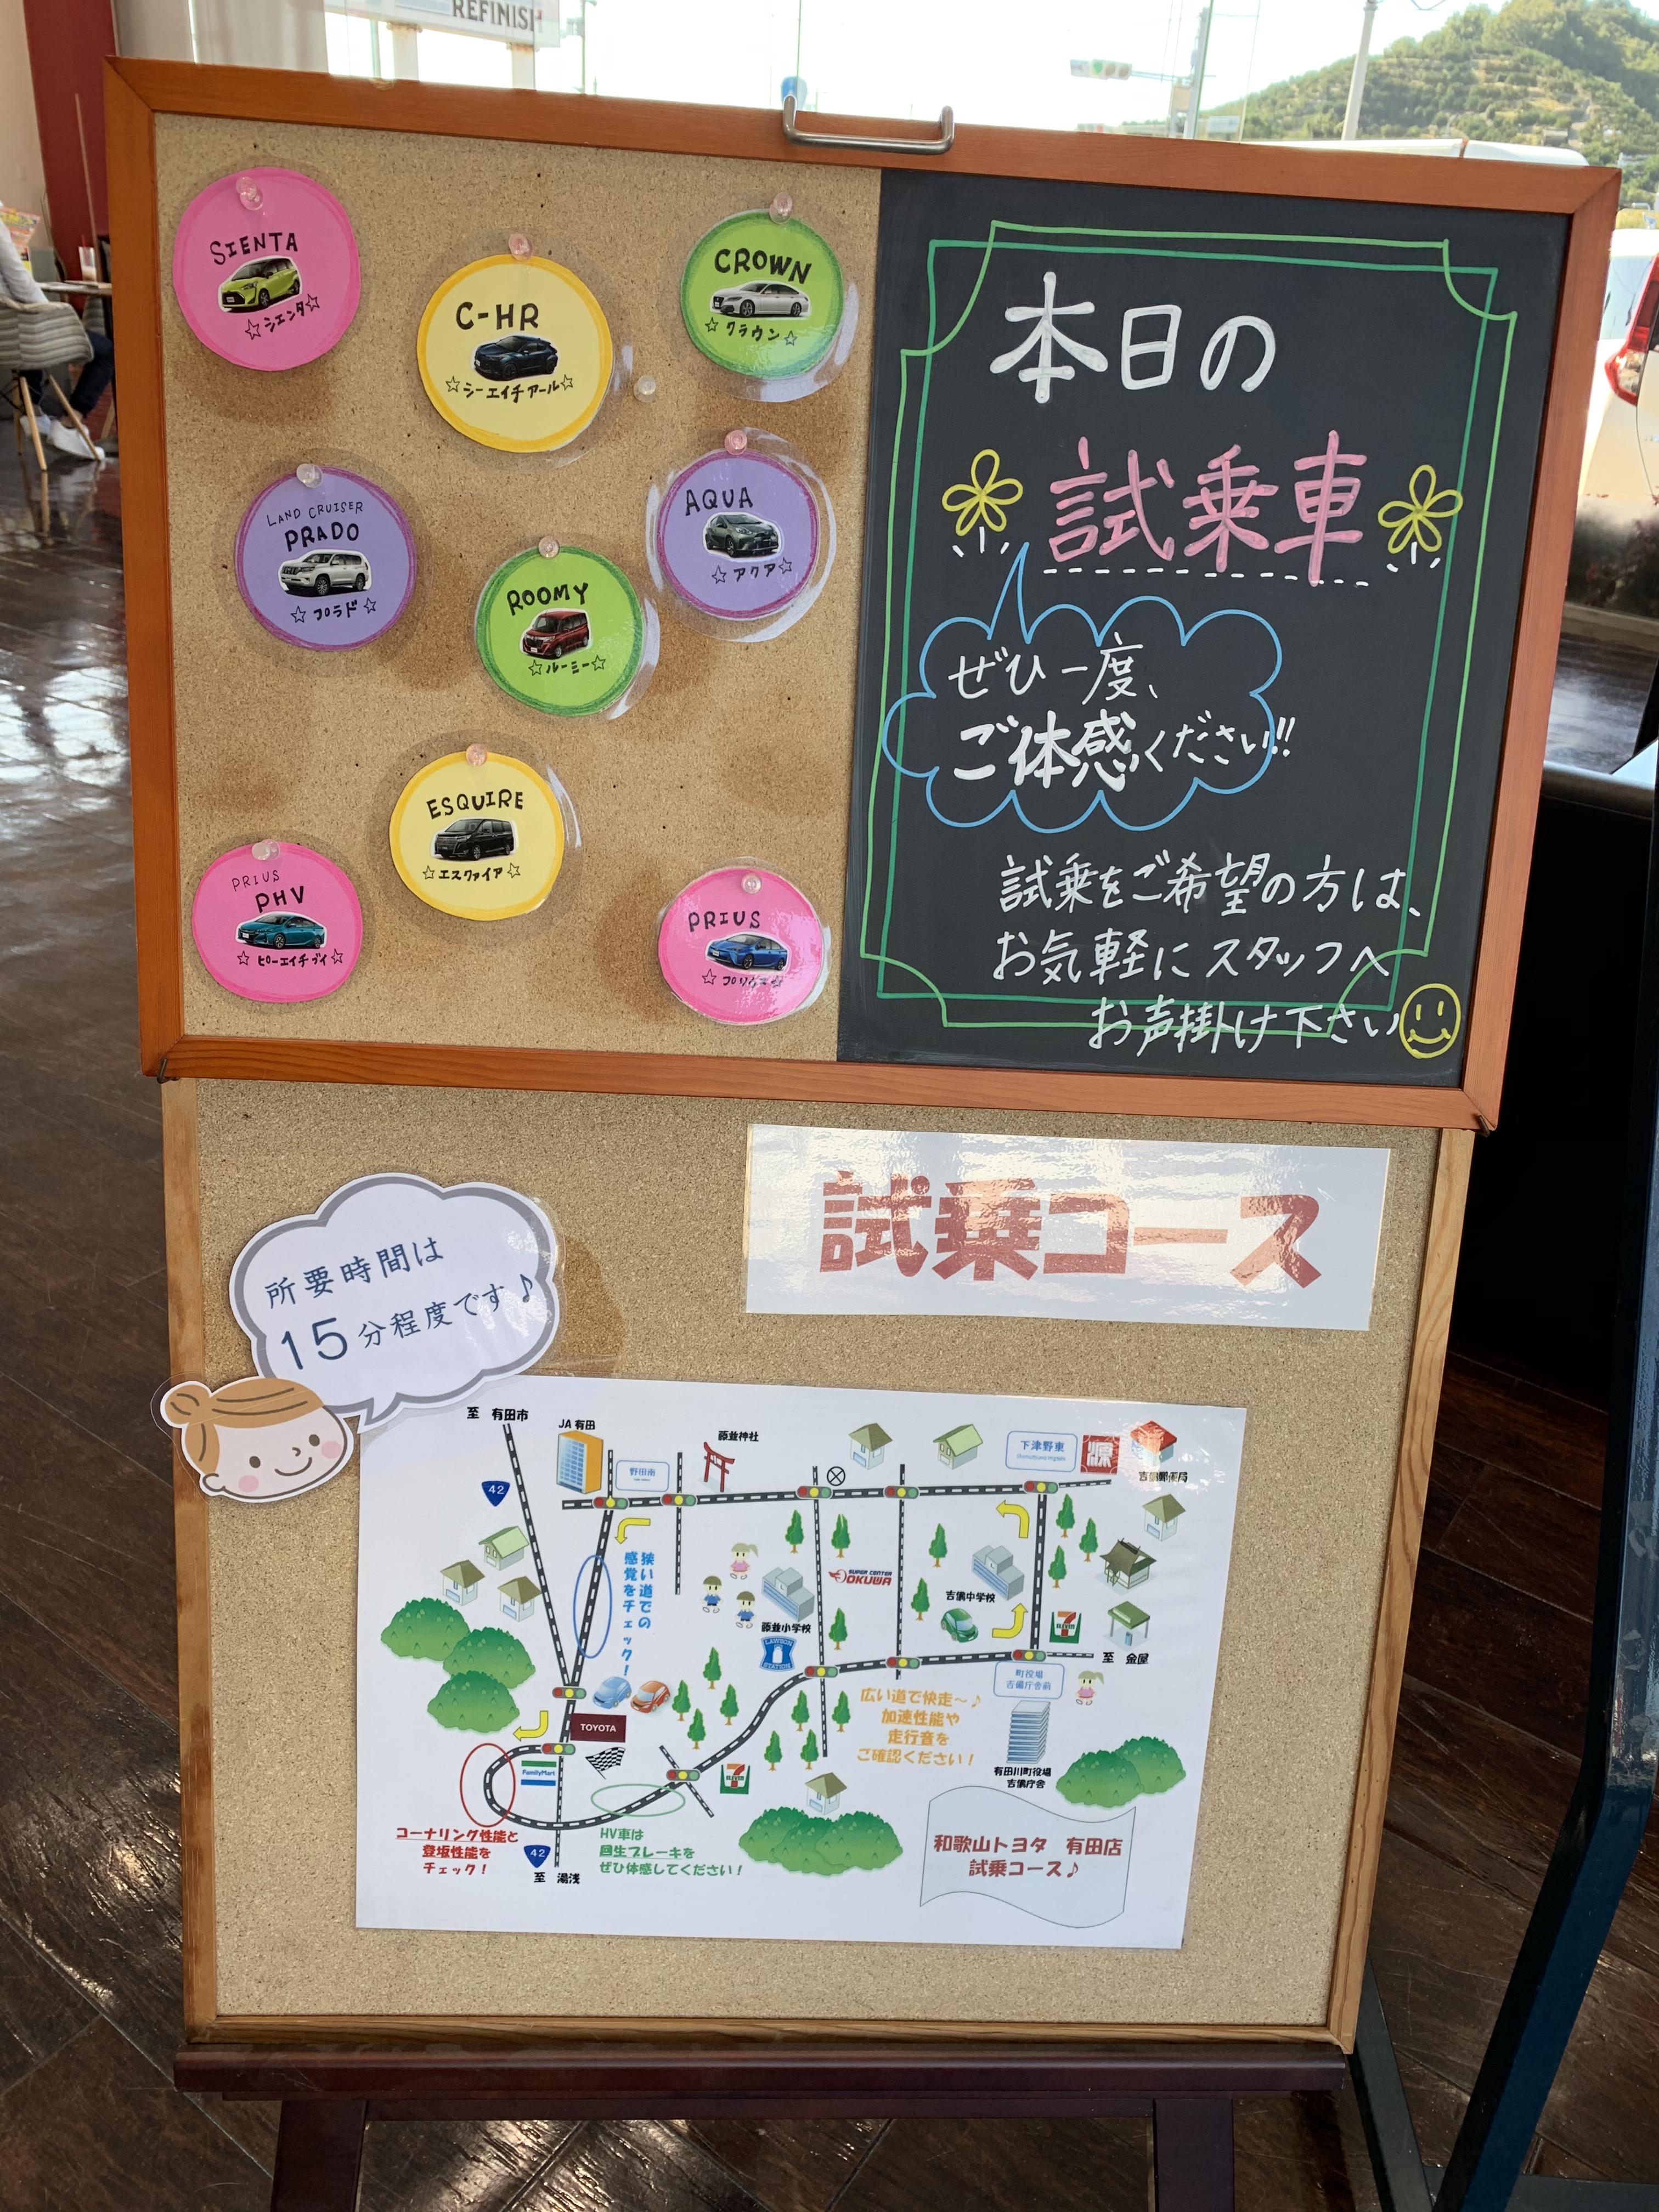 REFINISH
SIENTA
☆シエンタ☆
C-HR
☆シーエイチアール☆
CROWN
☆クラウン☆
LAND CRUISER
PRADO
☆プラド☆
ROOMY
☆ルーミー☆
AQUA
☆アクア☆
ESQUIRE
☆エスクァイア☆
PRIUS
PHV
☆ピーエイチブイ☆
PRIUS
☆プリウス☆
本日の
試乗車
ぜひ一度、
ご体感ください!!
試乗をご希望の方は、
お気軽にスタッフへ
お声掛け下さい
試乗コース
所要時間は
15分程度です♪
至 有田市
JA有田
野田南
藤並神社
下津野東
吉備郵便局
42
狭い道での
感覚をチェック!
藤並小学校
LAWSON
STATION
SUPER CENTER
OKUWA
吉備中学校
7
ELEVEN
至 金屋
町役場
吉備庁舎前
広い道で快走～♪
加速性能や
走行音を
ご確認ください!
有田川町役場
吉備庁舎
TOYOTA
FamilyMart
7
ELEVEN
コーナリング性能と
登坂性能を
チェック!
42
至 湯浅
HV車は
回生ブレーキを
ぜひ体感してください!
和歌山トヨタ 有田店
試乗コース♪